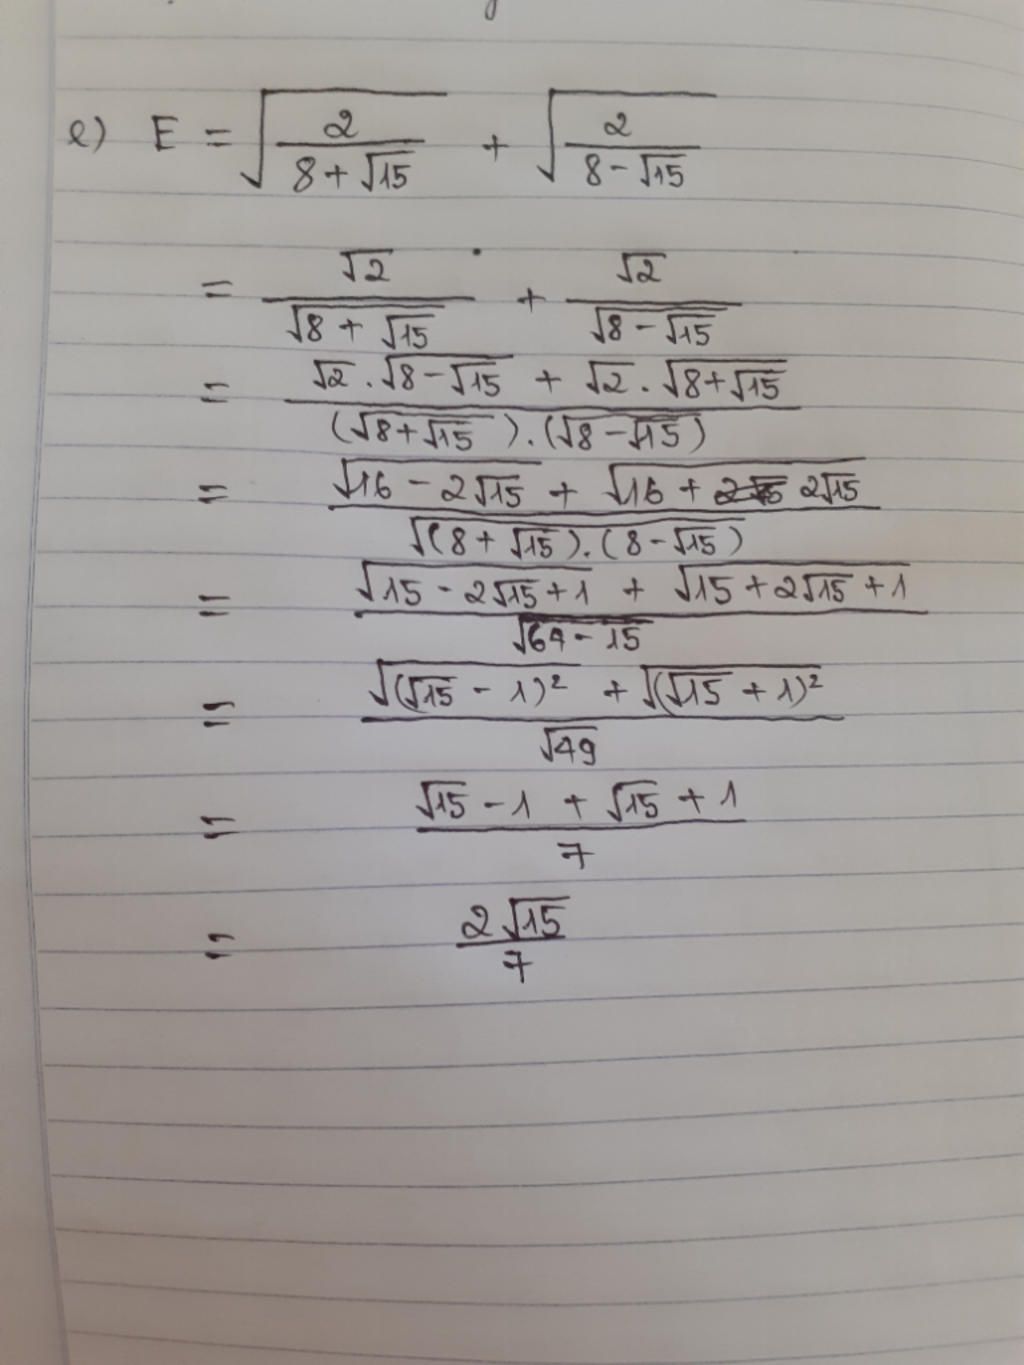 e) E = √(2/(8+√15)) + √(2/(8-√15))
= √2/√(8+√15) + √2/√(8-√15)
= (√2.√(8-√15) + √2.√(8+√15))/((√(8+√15)).(√(8-√15)))
= (√(16-2√15) + √(16+2√15))/√((8+√15).(8-√15))
= (√(15-2√15+1) + √(15+2√15+1))/√(64-15)
= (√((√15-1)²) + √((√15+1)²))/√49
= (√15-1+√15+1)/7
= 2√15/7